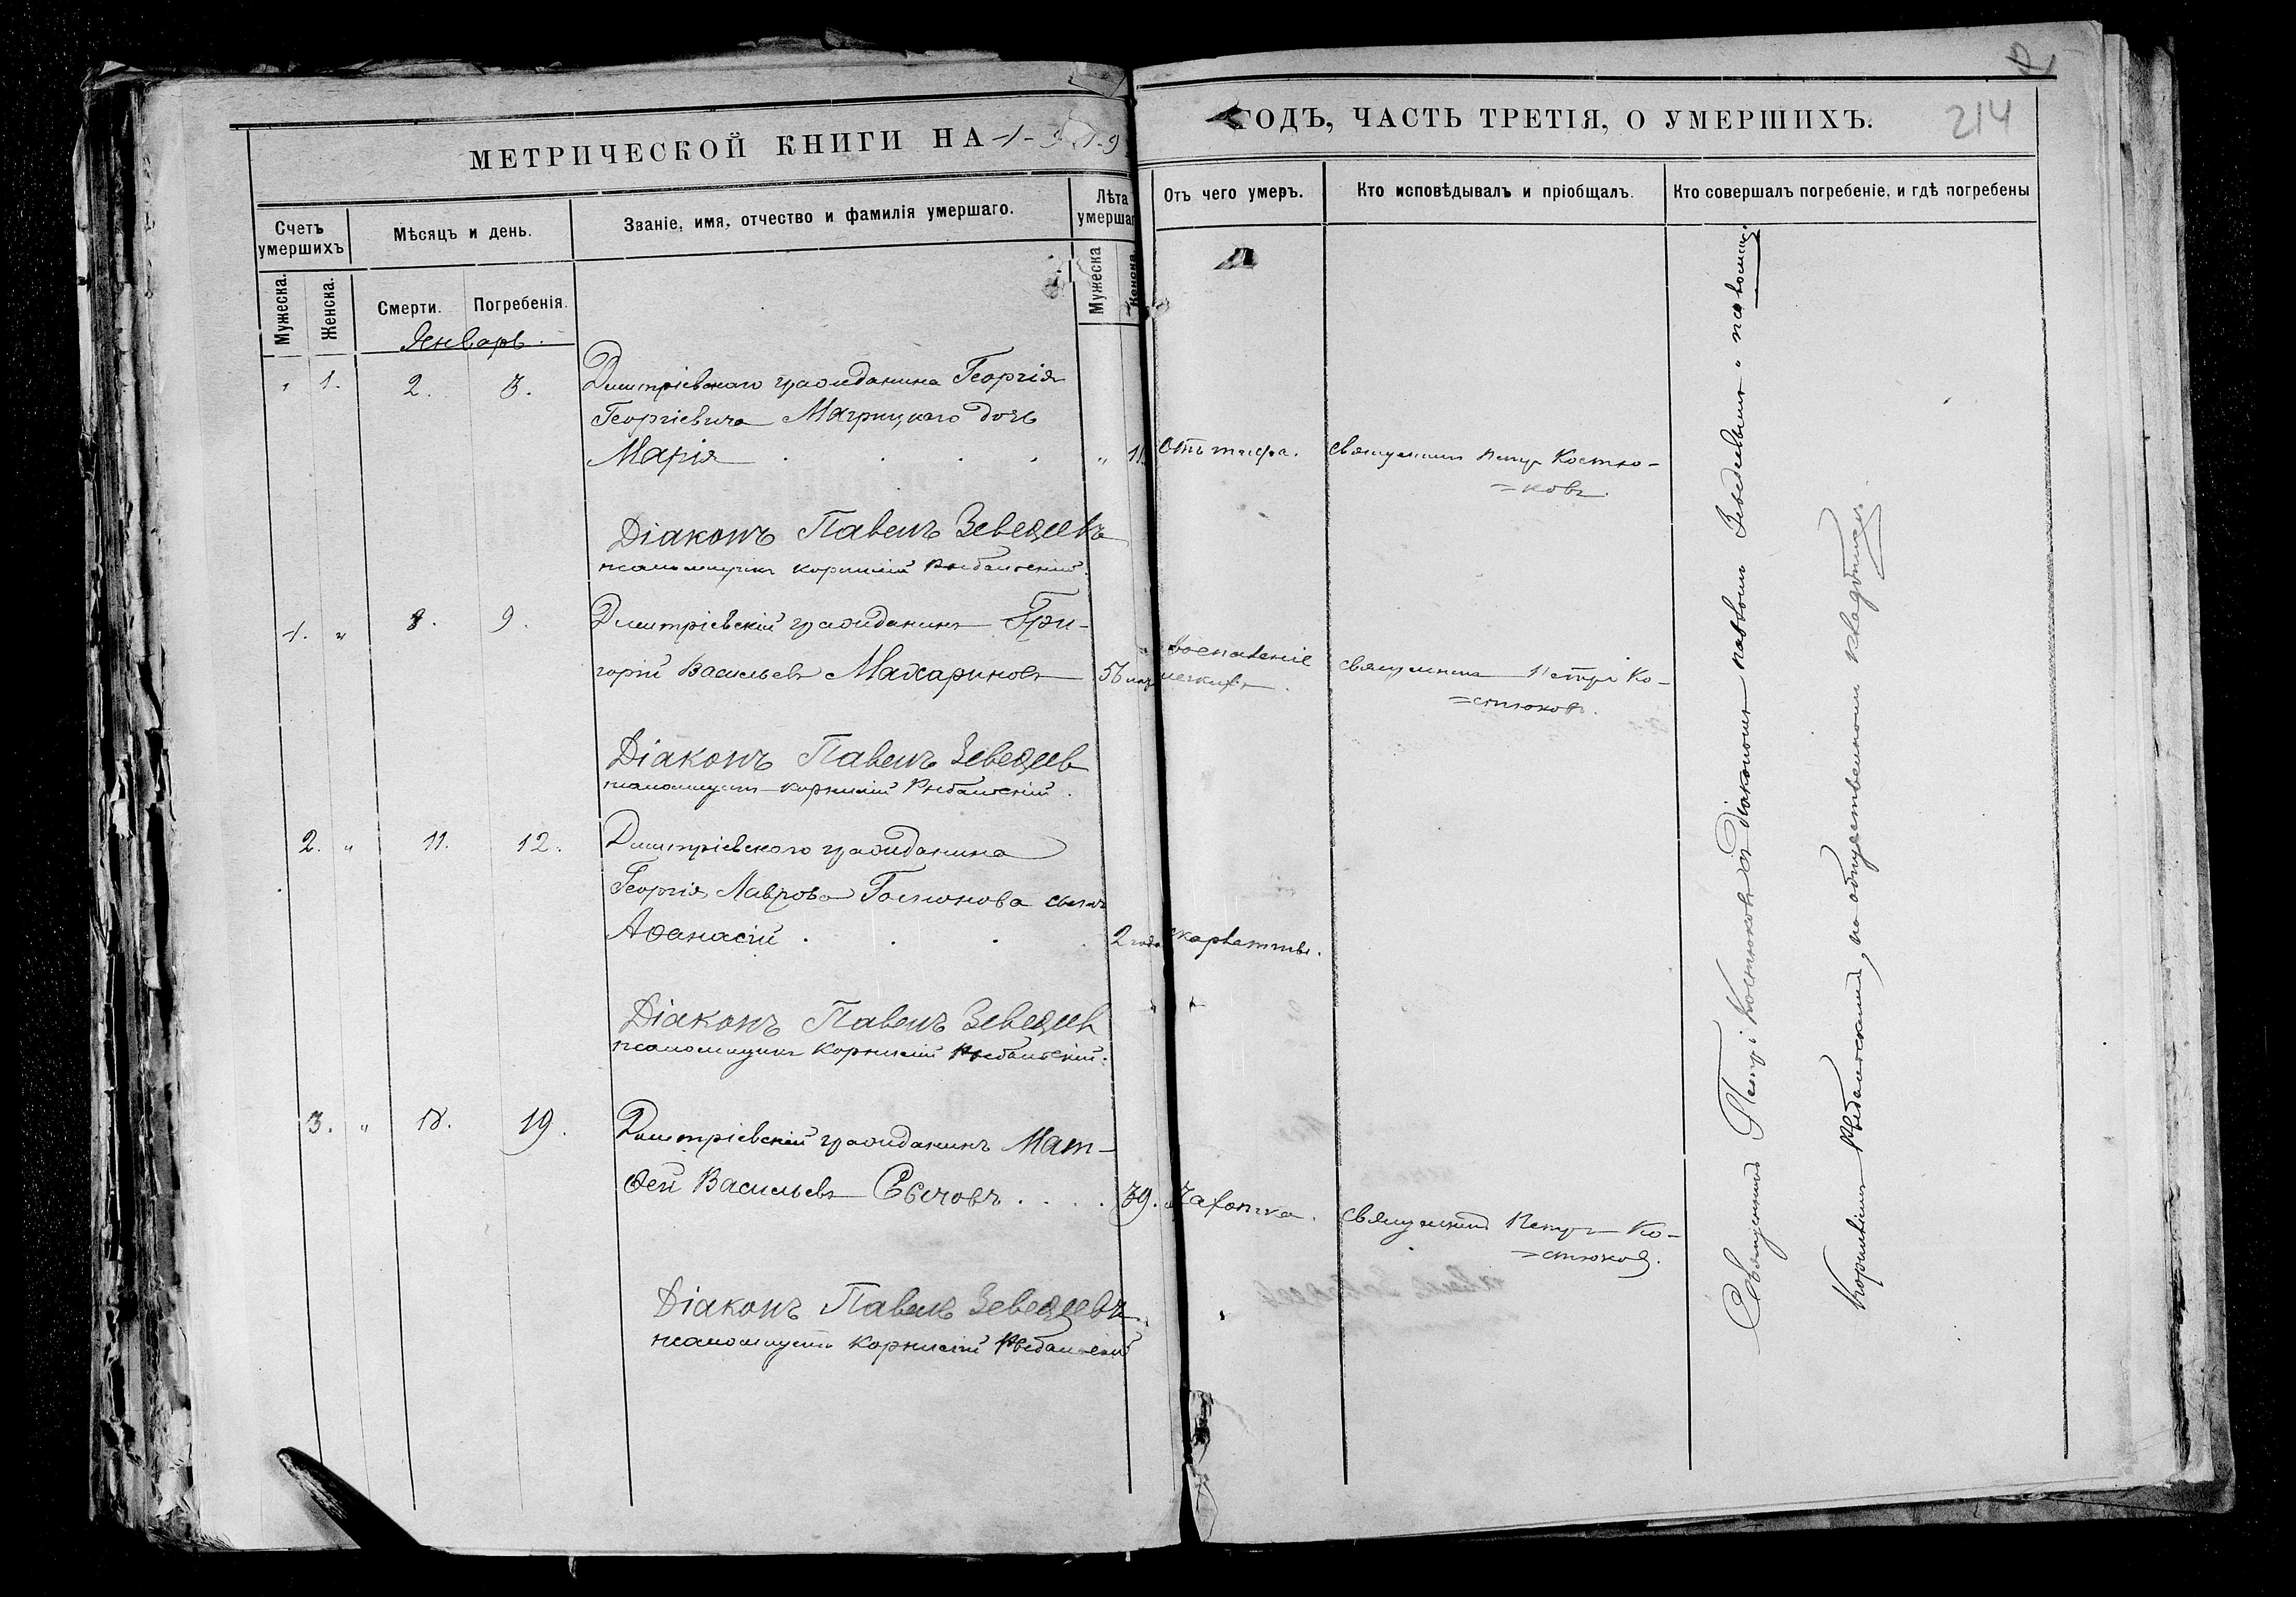 МЕТРИЧЕСКОЙ КНИГИ НА 1-919
Счетъ умершихъ
Мѣсяцъ и день.
Званіе, имя, отчество и фамилія умершаго.
Лѣта умершаго
Мужеска.
Женска.
Смерти.
Погребенія.
Мужеска
Женска.
Январь.
" 1. 2. 3. Дмитріевского гражданина Георгія
Георгіевича Магрицкого дочь
Марія . . . . " 11
Діаконъ Павелъ Зеведеевъ
псаломщикъ Корнилій
1. " 8. 9. Дмитріевскій гражданинъ Гри-
горій Васильевъ Махариновъ 56
Діаконъ Павелъ Зеведеев
псаломщикъ Корнилій
2. " 11. 12. Дмитріевского гражданина
Георгія Лаврова сынъ
Аѳанасій . . . . 2 года
Діаконъ Павелъ Зеведеев
псаломщикъ Корнилій
3. " 18. 19. Дмитріевскій гражданинъ Мат-
ѳей Васильевъ Сычовъ . . . . 39.
Діаконъ Павелъ Зеведеевъ
псаломщикъ Корнилій
214
ГОДЪ, ЧАСТЬ ТРЕТІЯ, О УМЕРШИХЪ.
Отъ чего умеръ.
Кто исповѣдывалъ и пріобщалъ.
Кто совершалъ погребеніе, и гдѣ погребены
Отъ тифа. священникъ Петръ Костю-
=ковъ.
Воспаленіе священникъ Петръ Ко-
легкихъ. =стюковъ.
скарлатины.
Чахотка. священникъ Петръ Ко-
=стюковъ.
Священникъ Петръ Костюковъ съ діакономъ Павломъ Зеведеевымъ и псаломщ.
Корниліемъ, на общественномъ кладбищѣ.